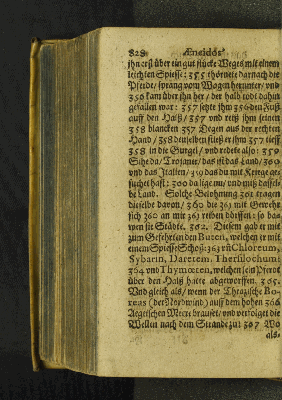 828. Æneidos
ihn erst über ein gut stücke Weges mit einem
leichten Spiesse: 355 thörnete darnach die
Pferde/ sprang vom Wagen herunter/ und
356 kam über ihn her/ der halb todt dahin
gefallen war: 357 setzte ihm 356 den Fuß
auff den Halß/ 357 und reiß ihm seinen
358 blancken 357 Degen aus der rechten
Hand/ 358 denselben stieß er ihm 357 tieff
358 in die Gurgel/ und redete also: 359
Sihe da/ Trojaner/ das ist das Land/ 360
und das Italien/ 359 das du mit Kriege ge-
suchet hast: 360 da lige nu/ und miß dassel-
be Land. Solche Belohnung 361 tragen
dieselbe davon/ 360 die 361 mit Gewehr
sich 360 an mir 361 reiben dörffen: so bau-
wen sie Städte. 362. Diesem gab er mit
zum Gefehrten den Buten, welchen er mit
einem Spiesse Schoß: 363 uñ Chloreum,
Sybarin, Daretem, Thersilochum:
364 und Thymœten, welchen sein Pferdt
über den Halß hatte abgeworffen. 365.
Und gleich als/ wenn der Thrazische Bo-
reas (der Nordwind) auff dem hohen 366
Aegeischen Meere brauset/ und verfolget die
Wellen nach dem Strande zu: 367 Wo
als-